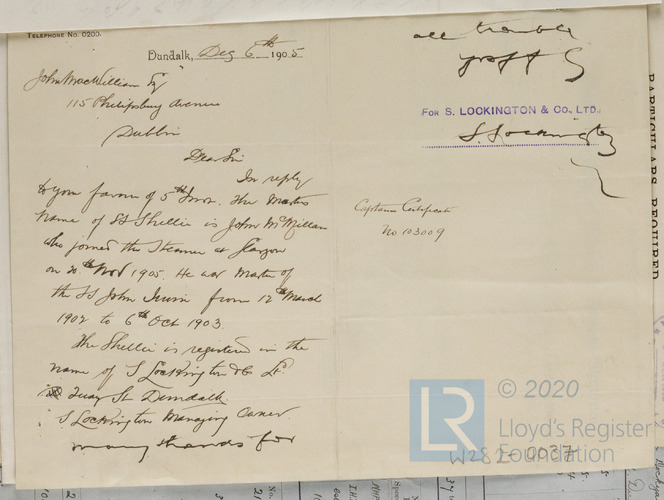 TELEPHONE No. 0200.
Dundalk, Dec 6th 1905
John MacWilliam Esq
115 Philipsburg Avenue
Dublin
Dear Sir
In reply
to your favour of 5th Inst. The Masters
name of SS Shellie is John McMillan
who joined the Steamer at Glasgow
on 20th Nov 1905. He was Master of
the SS John Irwin from 12th March
1902 to 6th Oct 1903.
The Shellie is registered in the
name of S Lockington & Co Ld.
Quay St Dundalk.
S Lockington Managing Owner.
Many thanks for
all trouble
FOR S. LOCKINGTON & CO., LTD.
S. Lockington
Captains Certificate
No. 103009
PARTICULARS REQUIRED
LR
© 2020
Lloyd's Register
Foundation
W282-0037